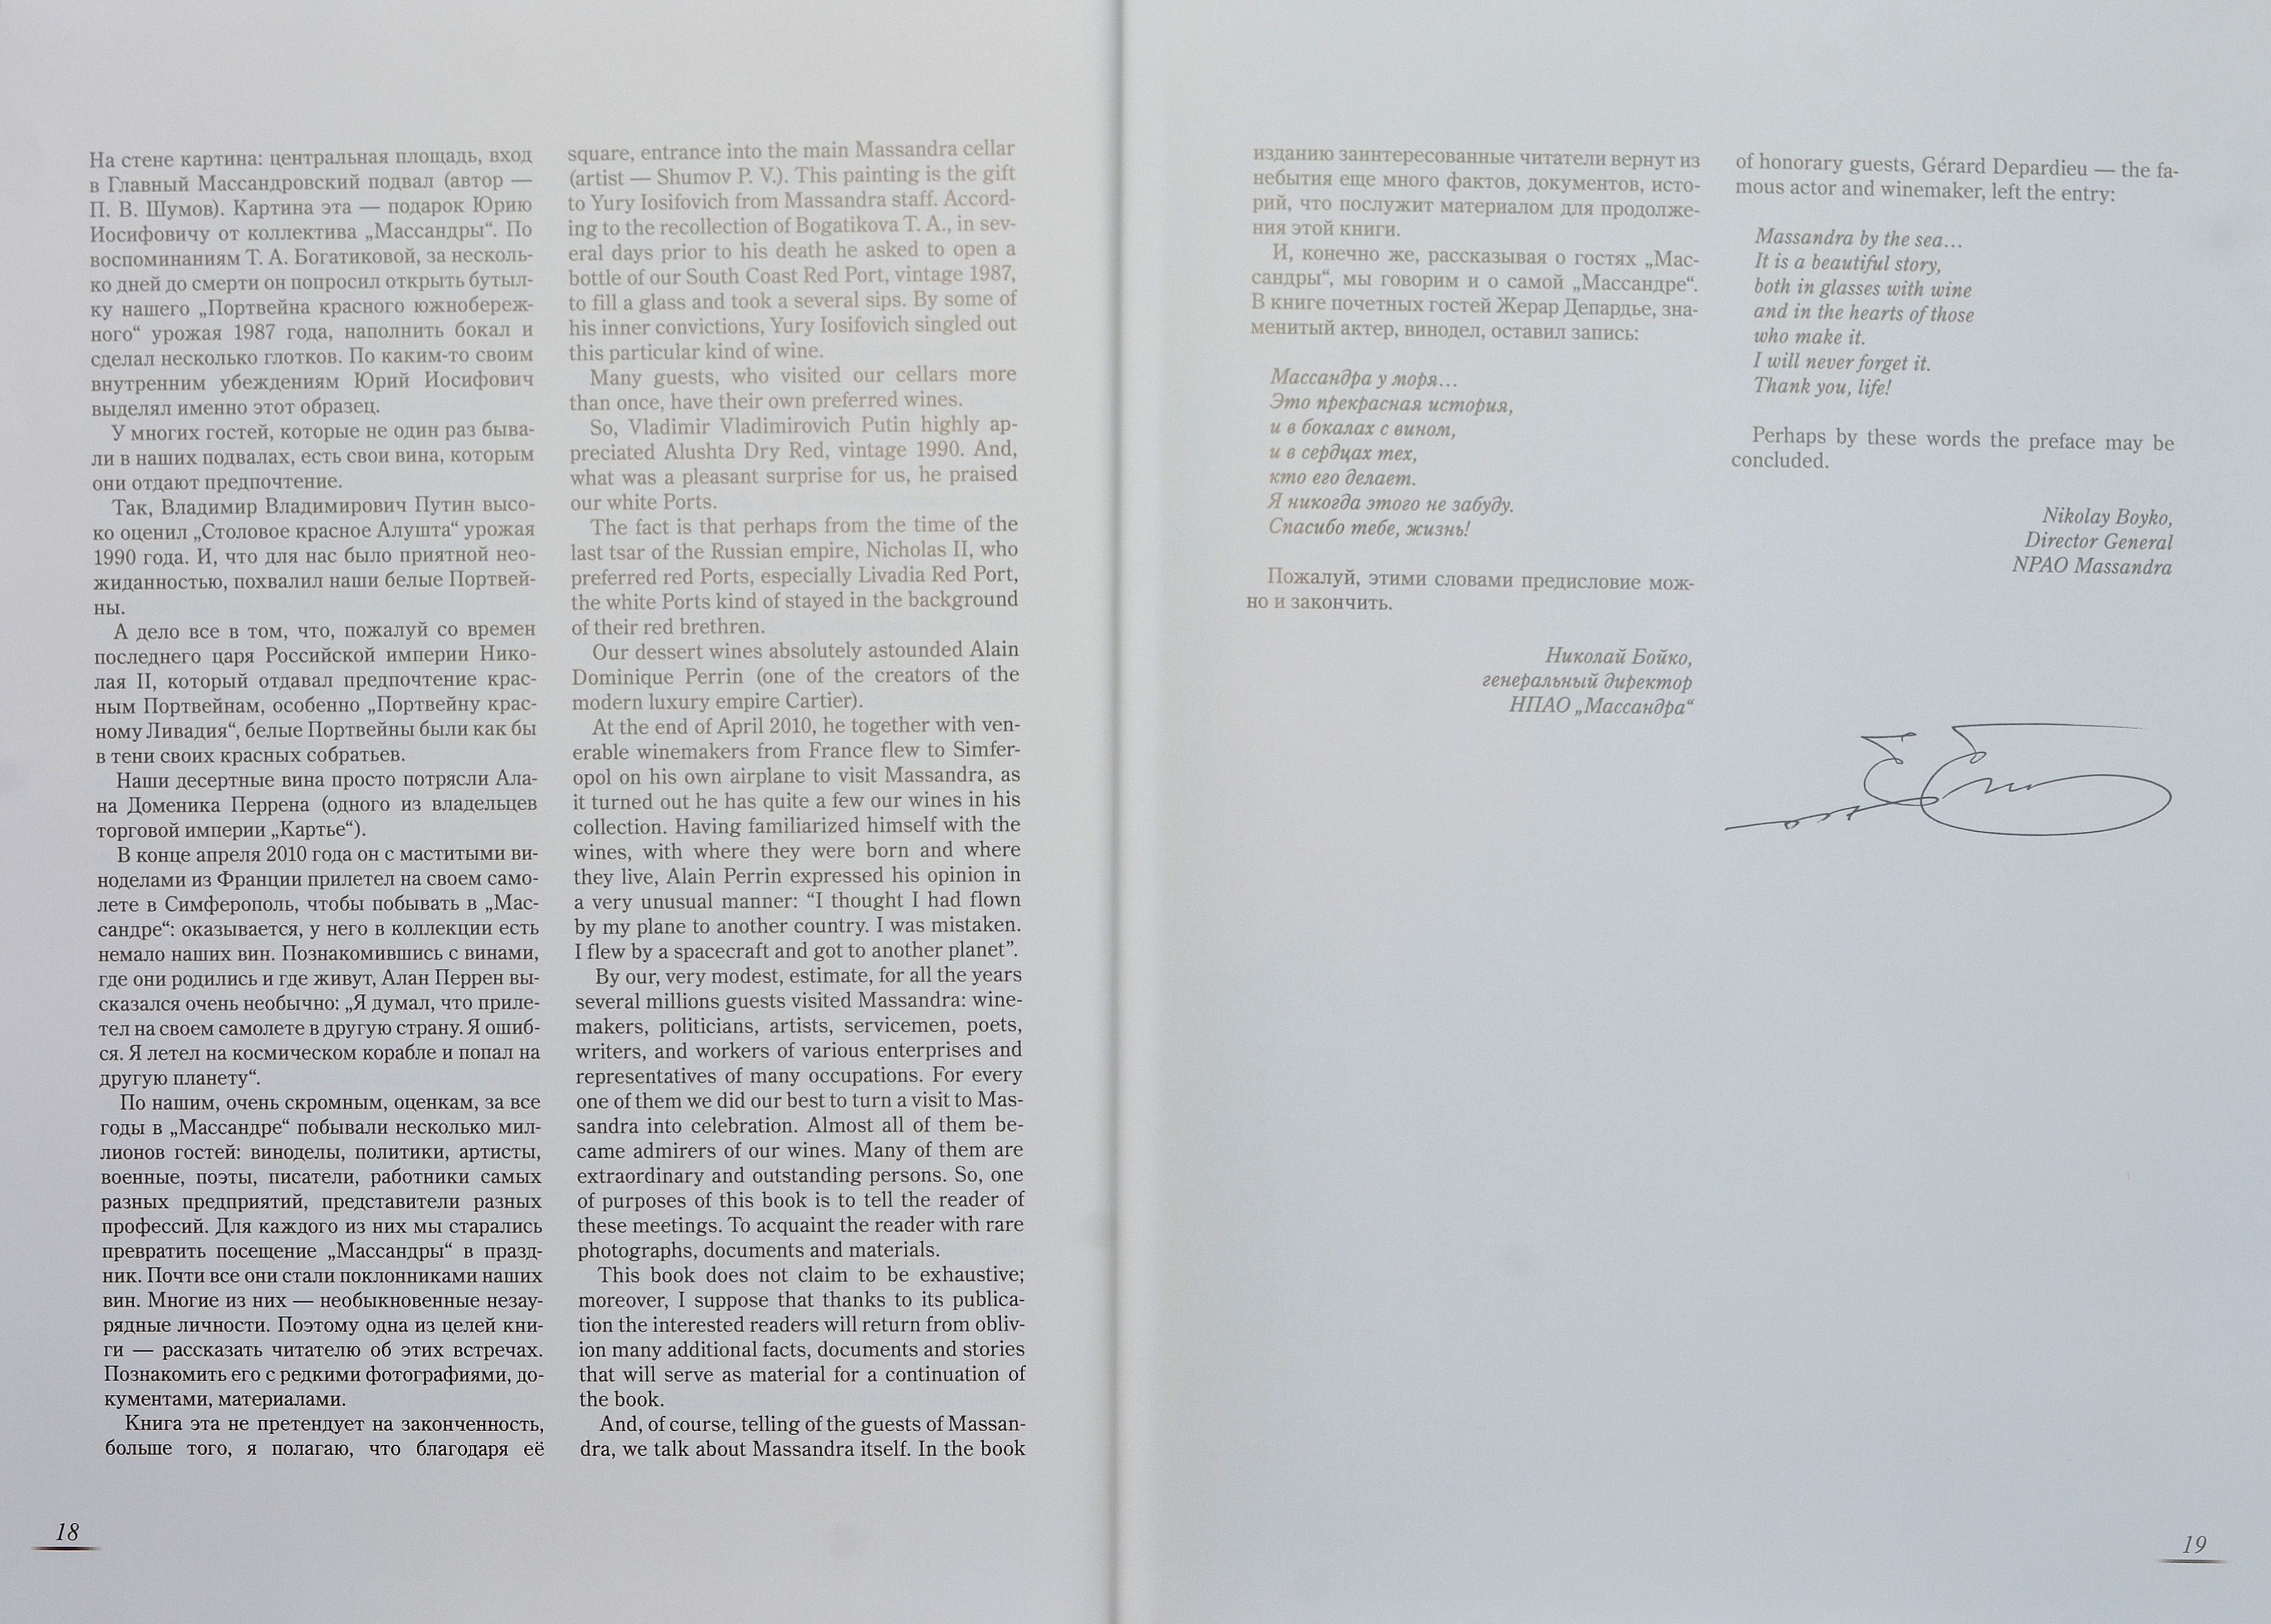 На стене картина: центральная площадь, вход
в Главный Массандровский подвал (автор —
П. В. Шумов). Картина эта — подарок Юрию
Иосифовичу от коллектива „Массандры“. По
воспоминаниям Т. А. Богатиковой, за несколь-
ко дней до смерти он попросил открыть бутыл-
ку нашего „Портвейна красного южнобереж-
ного“ урожая 1987 года, наполнить бокал и
сделал несколько глотков. По каким-то своим
внутренним убеждениям Юрий Иосифович
выделял именно этот образец.
У многих гостей, которые не один раз быва-
ли в наших подвалах, есть свои вина, которым
они отдают предпочтение.
Так, Владимир Владимирович Путин высо-
ко оценил „Столовое красное Алушта“ урожая
1990 года. И, что для нас было приятной нео-
жиданностью, похвалил наши белые Портвей-
ны.
А дело все в том, что, пожалуй со времен
последнего царя Российской империи Нико-
лая II, который отдавал предпочтение крас-
ным Портвейнам, особенно „Портвейну крас-
ному Ливадия“, белые Портвейны были как бы
в тени своих красных собратьев.
Наши десертные вина просто потрясли Ала-
на Доменика Перрена (одного из владельцев
торговой империи „Картье“).
В конце апреля 2010 года он с маститыми ви-
ноделами из Франции прилетел на своем само-
лете в Симферополь, чтобы побывать в „Мас-
сандре“: оказывается, у него в коллекции есть
немало наших вин. Познакомившись с винами,
где они родились и где живут, Алан Перрен вы-
сказался очень необычно: „Я думал, что приле-
тел на своем самолете в другую страну. Я ошиб-
ся. Я летел на космическом корабле и попал на
другую планету“.
По нашим, очень скромным, оценкам, за все
годы в „Массандре“ побывали несколько мил-
лионов гостей: виноделы, политики, артисты,
военные, поэты, писатели, работники самых
разных предприятий, представители разных
профессий. Для каждого из них мы старались
превратить посещение „Массандры“ в празд-
ник. Почти все они стали поклонниками наших
вин. Многие из них — необыкновенные незау-
рядные личности. Поэтому одна из целей кни-
ги — рассказать читателю об этих встречах.
Познакомить его с редкими фотографиями, до-
кументами, материалами.
Книга эта не претендует на законченность,
больше того, я полагаю, что благодаря её
square, entrance into the main Massandra cellar
(artist — Shumov P. V.). This painting is the gift
to Yury Iosifovich from Massandra staff. Accord-
ing to the recollection of Bogatikova T. A., in sev-
eral days prior to his death he asked to open a
bottle of our South Coast Red Port, vintage 1987,
to fill a glass and took a several sips. By some of
his inner convictions, Yury Iosifovich singled out
this particular kind of wine.
Many guests, who visited our cellars more
than once, have their own preferred wines.
So, Vladimir Vladimirovich Putin highly ap-
preciated Alushta Dry Red, vintage 1990. And,
what was a pleasant surprise for us, he praised
our white Ports.
The fact is that perhaps from the time of the
last tsar of the Russian empire, Nicholas II, who
preferred red Ports, especially Livadia Red Port,
the white Ports kind of stayed in the background
of their red brethren.
Our dessert wines absolutely astounded Alain
Dominique Perrin (one of the creators of the
modern luxury empire Cartier).
At the end of April 2010, he together with ven-
erable winemakers from France flew to Simfer-
opol on his own airplane to visit Massandra, as
it turned out he has quite a few our wines in his
collection. Having familiarized himself with the
wines, with where they were born and where
they live, Alain Perrin expressed his opinion in
a very unusual manner: “I thought I had flown
by my plane to another country. I was mistaken.
I flew by a spacecraft and got to another planet”.
By our, very modest, estimate, for all the years
several millions guests visited Massandra: wine-
makers, politicians, artists, servicemen, poets,
writers, and workers of various enterprises and
representatives of many occupations. For every
one of them we did our best to turn a visit to Mas-
sandra into celebration. Almost all of them be-
came admirers of our wines. Many of them are
extraordinary and outstanding persons. So, one
of purposes of this book is to tell the reader of
these meetings. To acquaint the reader with rare
photographs, documents and materials.
This book does not claim to be exhaustive;
moreover, I suppose that thanks to its publica-
tion the interested readers will return from obliv-
ion many additional facts, documents and stories
that will serve as material for a continuation of
the book.
And, of course, telling of the guests of Massan-
dra, we talk about Massandra itself. In the book
18
изданию заинтересованные читатели вернут из
небытия еще много фактов, документов, исто-
рий, что послужит материалом для продолже-
ния этой книги.
И, конечно же, рассказывая о гостях „Мас-
сандры“, мы говорим и о самой „Массандре“.
В книге почетных гостей Жерар Депардье, зна-
менитый актер, винодел, оставил запись:
Массандра у моря...
Это прекрасная история,
и в бокалах с вином,
и в сердцах тех,
кто его делает.
Я никогда этого не забуду.
Спасибо тебе, жизнь!
Пожалуй, этими словами предисловие мож-
но и закончить.
Николай Бойко,
генеральный директор
НПАО „Массандра“
of honorary guests, Gérard Depardieu — the fa-
mous actor and winemaker, left the entry:
Massandra by the sea...
It is a beautiful story,
both in glasses with wine
and in the hearts of those
who make it.
I will never forget it.
Thank you, life!
Perhaps by these words the preface may be
concluded.
Nikolay Boyko,
Director General
NPAO Massandra
19